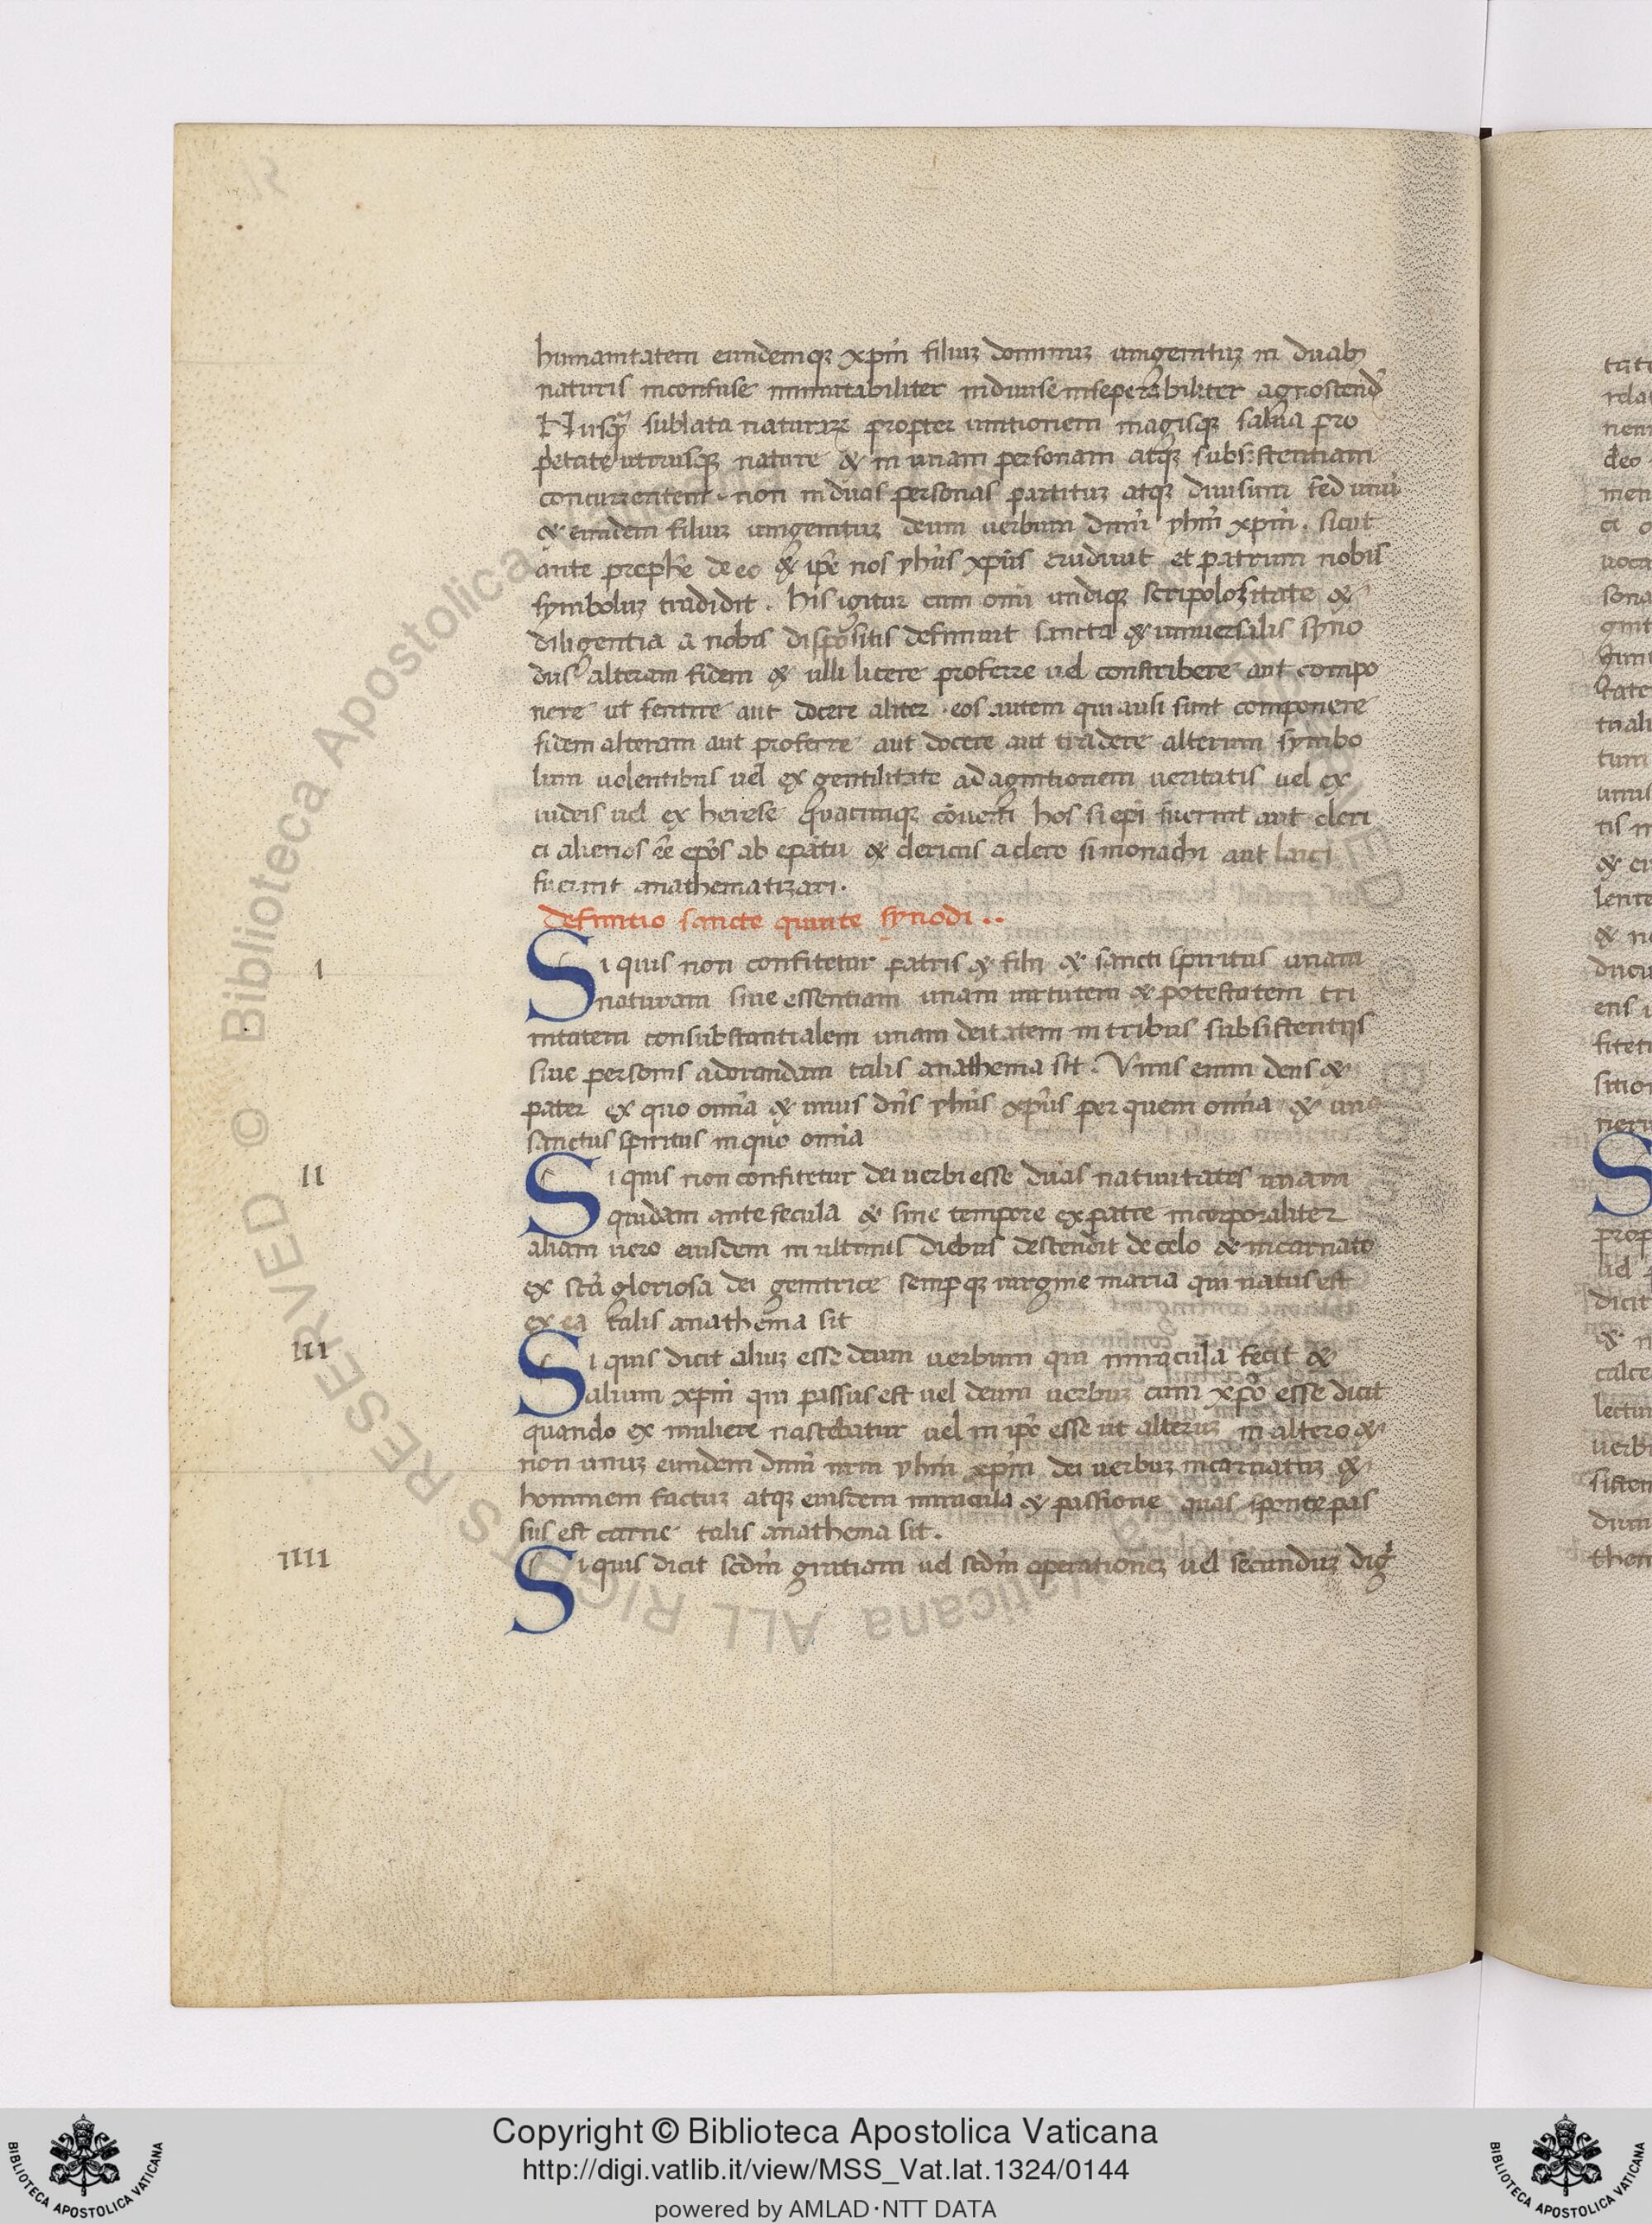 humanitatem eundemqꝫ xp̄m filiuꝫ dominuꝫ unigenituꝫ in duabꝫ
naturis inconfuse inmutabiliter indiuise inseperabiliter agnoscend̄
Nusq̄ sublata naturaꝝ propter unitionem magisqꝫ salua pro
petate utriusqꝫ nature & in unam personam atqꝫ subsistentiam
concurrentem . non in duas personas partituꝫ atqꝫ diuisum sed unū
& eundem filiuꝫ unigenituꝫ deum uerbum dnm̄ yhm̄ xpm̄ . sicut
ante prophē de eo & ip̄e nos yhūs xpūs erudiuit et patrum nobis
symboluꝫ tradidit . his igitur cum omī undiqꝫ scripolozitate &
diligentia a nobis dispositis definiuit sancta & uniuersalis syno
dus alteram fidem & ulli licere proferre uel conscribere aut compo
nere ut sentire aut docere aliter . eos autem qui ausi sunt componere
fidem alteram aut proferre aut docere aut tradere alterum symbo
lum uolentibus uel ex gentilitate ad agnitionem ueritatis uel ex
iudeis uel ex herese quacunque cōuerti hos si epī fuerint aut cleri
ci alienos eē epōs ab epātu & clericus a clero si monachi aut laici
fuerint anathematizari .
Definitio sancte quinte synodi ..
I
Si quis non confitetur patris & filii & sancti spiritus unam
naturam siue essentiam unam uirtutem & potestatem tri
nitatem consubstantialem unam deitatem in tribus subsistentiis
siue personis adorandam talis anathema sit . Unus enim deus &
pater ex quo omīa & unus dn̄s yhūs xpūs per quem omīa & un
sanctus spiritus in quo omīa
II
Si quis non confitetur dei uerbi esse duas natiuitates unam
quidam ante secula & sine tempore ex patre incorporaliter
aliam uero eiusdem in ultimis diebus descendit de celo & incarnato
ex scā gloriosa dei genitrice semp qꝫ uirgine maria qui natus est
ex ea talis anathema sit
III
Si quis dicit aliuꝫ esse deum uerbum qui miracula fecit &
alium xpm̄ qui passus est uel deum uerbuꝫ cum xpō esse dicit
quando ex muliere nascebatur uel in ipō esse ut alteruꝫ in altero &
non unuꝫ eundem dnm̄ nrm̄ yhm̄ xpm̄ dei uerbuꝫ incarnatuꝫ &
hominem factuꝫ atqꝫ eiusdem miracula & passione quas sponte pas
sus est carne talis anathema sit .
IIII
Si quis dicit scdm̄ gratiam uel scdm̄ operationeꝫ uel secunduꝫ diḡ
Copyright © Biblioteca Apostolica Vaticana
http://digi.vatlib.it/view/MSS_Vat.lat.1324/0144
powered by AMLAD·NTT DATA
BIBLIOTECA APOSTOLICA VATICANA
BIBLIOTECA APOSTOLICA VATICANA